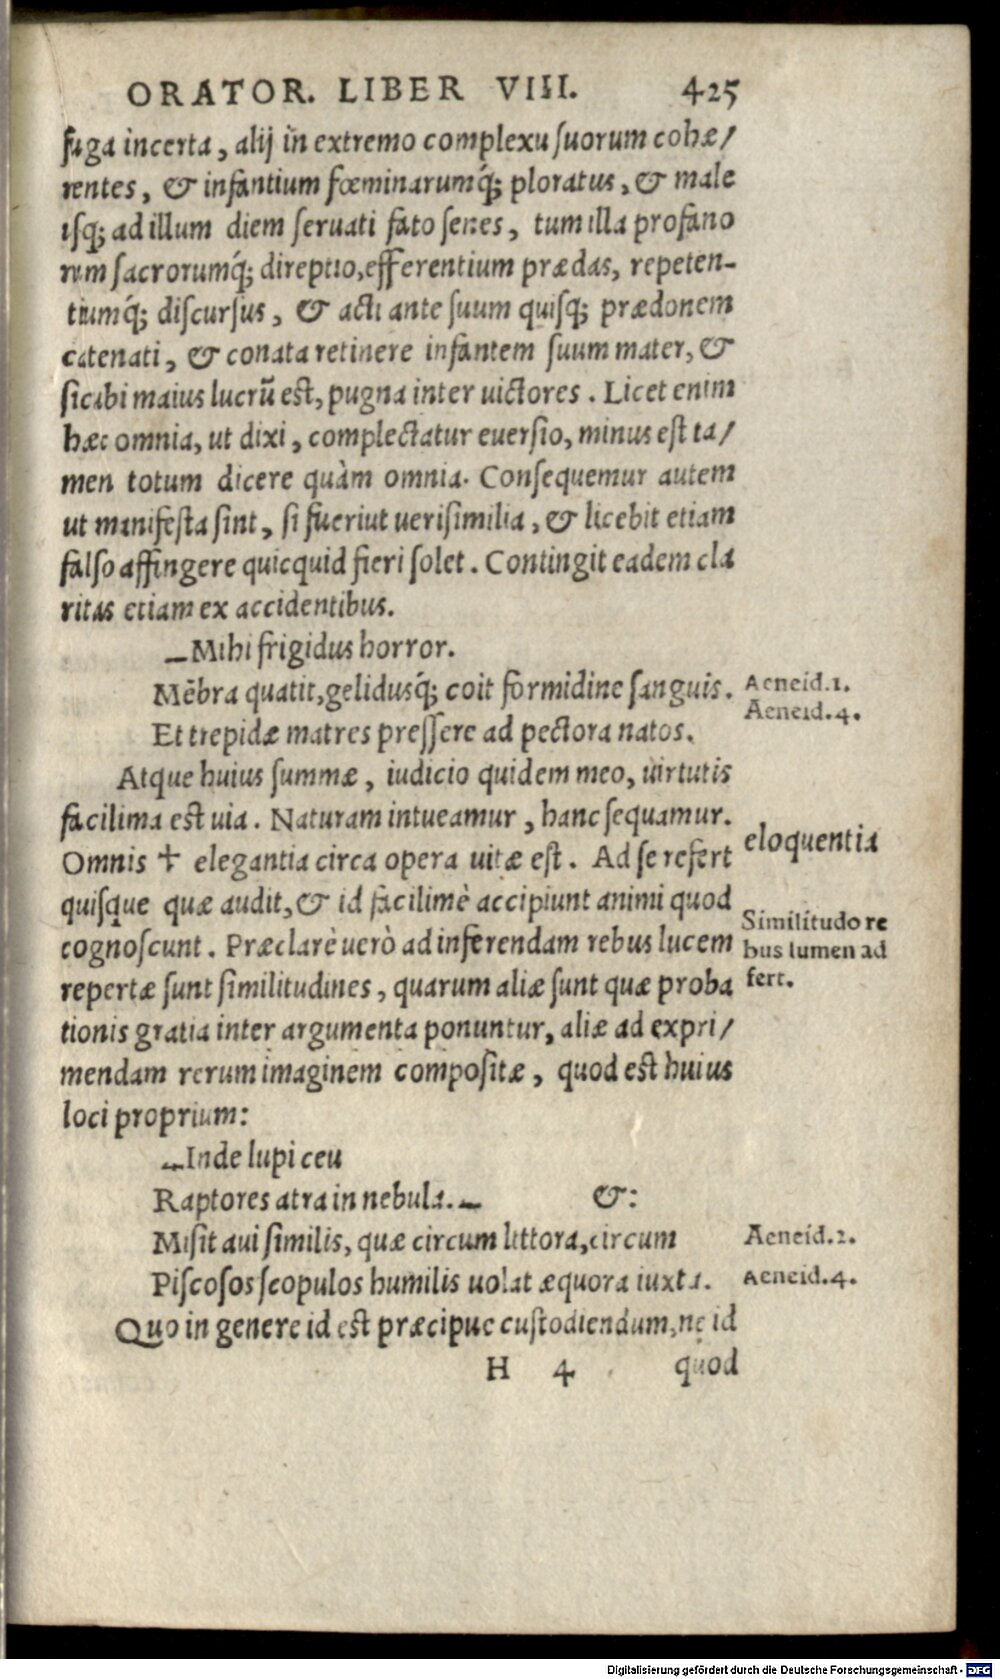 ORATOR. LIBER VIII. 425
fuga incerta, alij in extremo complexu suorum cohæ/
rentes, & infantium fœminarumq́; ploratus, & male
isq; ad illum diem seruati fato senes, tum illa profano
rum sacrorumq́; direptio, efferentium prædas, repeten-
tiumq́; discursus, & acti ante suum quisq; prædonem
catenati, & conata retinere infantem suum mater, &
sicubi maius lucrũ est, pugna inter uictores. Licet enim
hæc omnia, ut dixi, complectatur euersio, minus est ta/
men totum dicere quàm omnia. Consequemur autem
ut manifesta sint, si fueriut uerisimilia, & licebit etiam
falso affingere quicquid fieri solet. Contingit eadem cla
ritas etiam ex accidentibus.
–Mihi frigidus horror.
Mẽbra quatit, gelidusq́; coit formidine sanguis.
Aeneid.1.
Et trepidæ matres pressere ad pectora natos.
Aeneid.4.
Atque huius summæ, iudicio quidem meo, uirtutis
facilima est uia. Naturam intueamur, hanc sequamur.
Omnis † elegantia circa opera uitæ est. Ad se refert
eloquentia
quisque quæ audit, & id facilimè accipiunt animi quod
cognoscunt. Præclarè uerò ad inferendam rebus lucem
repertæ sunt similitudines, quarum aliæ sunt quæ proba
Similitudo re
bus lumen ad
fert.
tionis gratia inter argumenta ponuntur, aliæ ad expri/
mendam rerum imaginem compositæ, quod est huius
loci proprium:
–Inde lupi ceu
Raptores atra in nebula.– &:
Misit aui similis, quæ circum littora, circum
Aeneid.2.
Piscosos scopulos humilis uolat æquora iuxta.
Aeneid.4.
Quo in genere id est præcipue custodiendum, ne id
H 4 quod
Digitalisierung gefördert durch die Deutsche Forschungsgemeinschaft - DFG